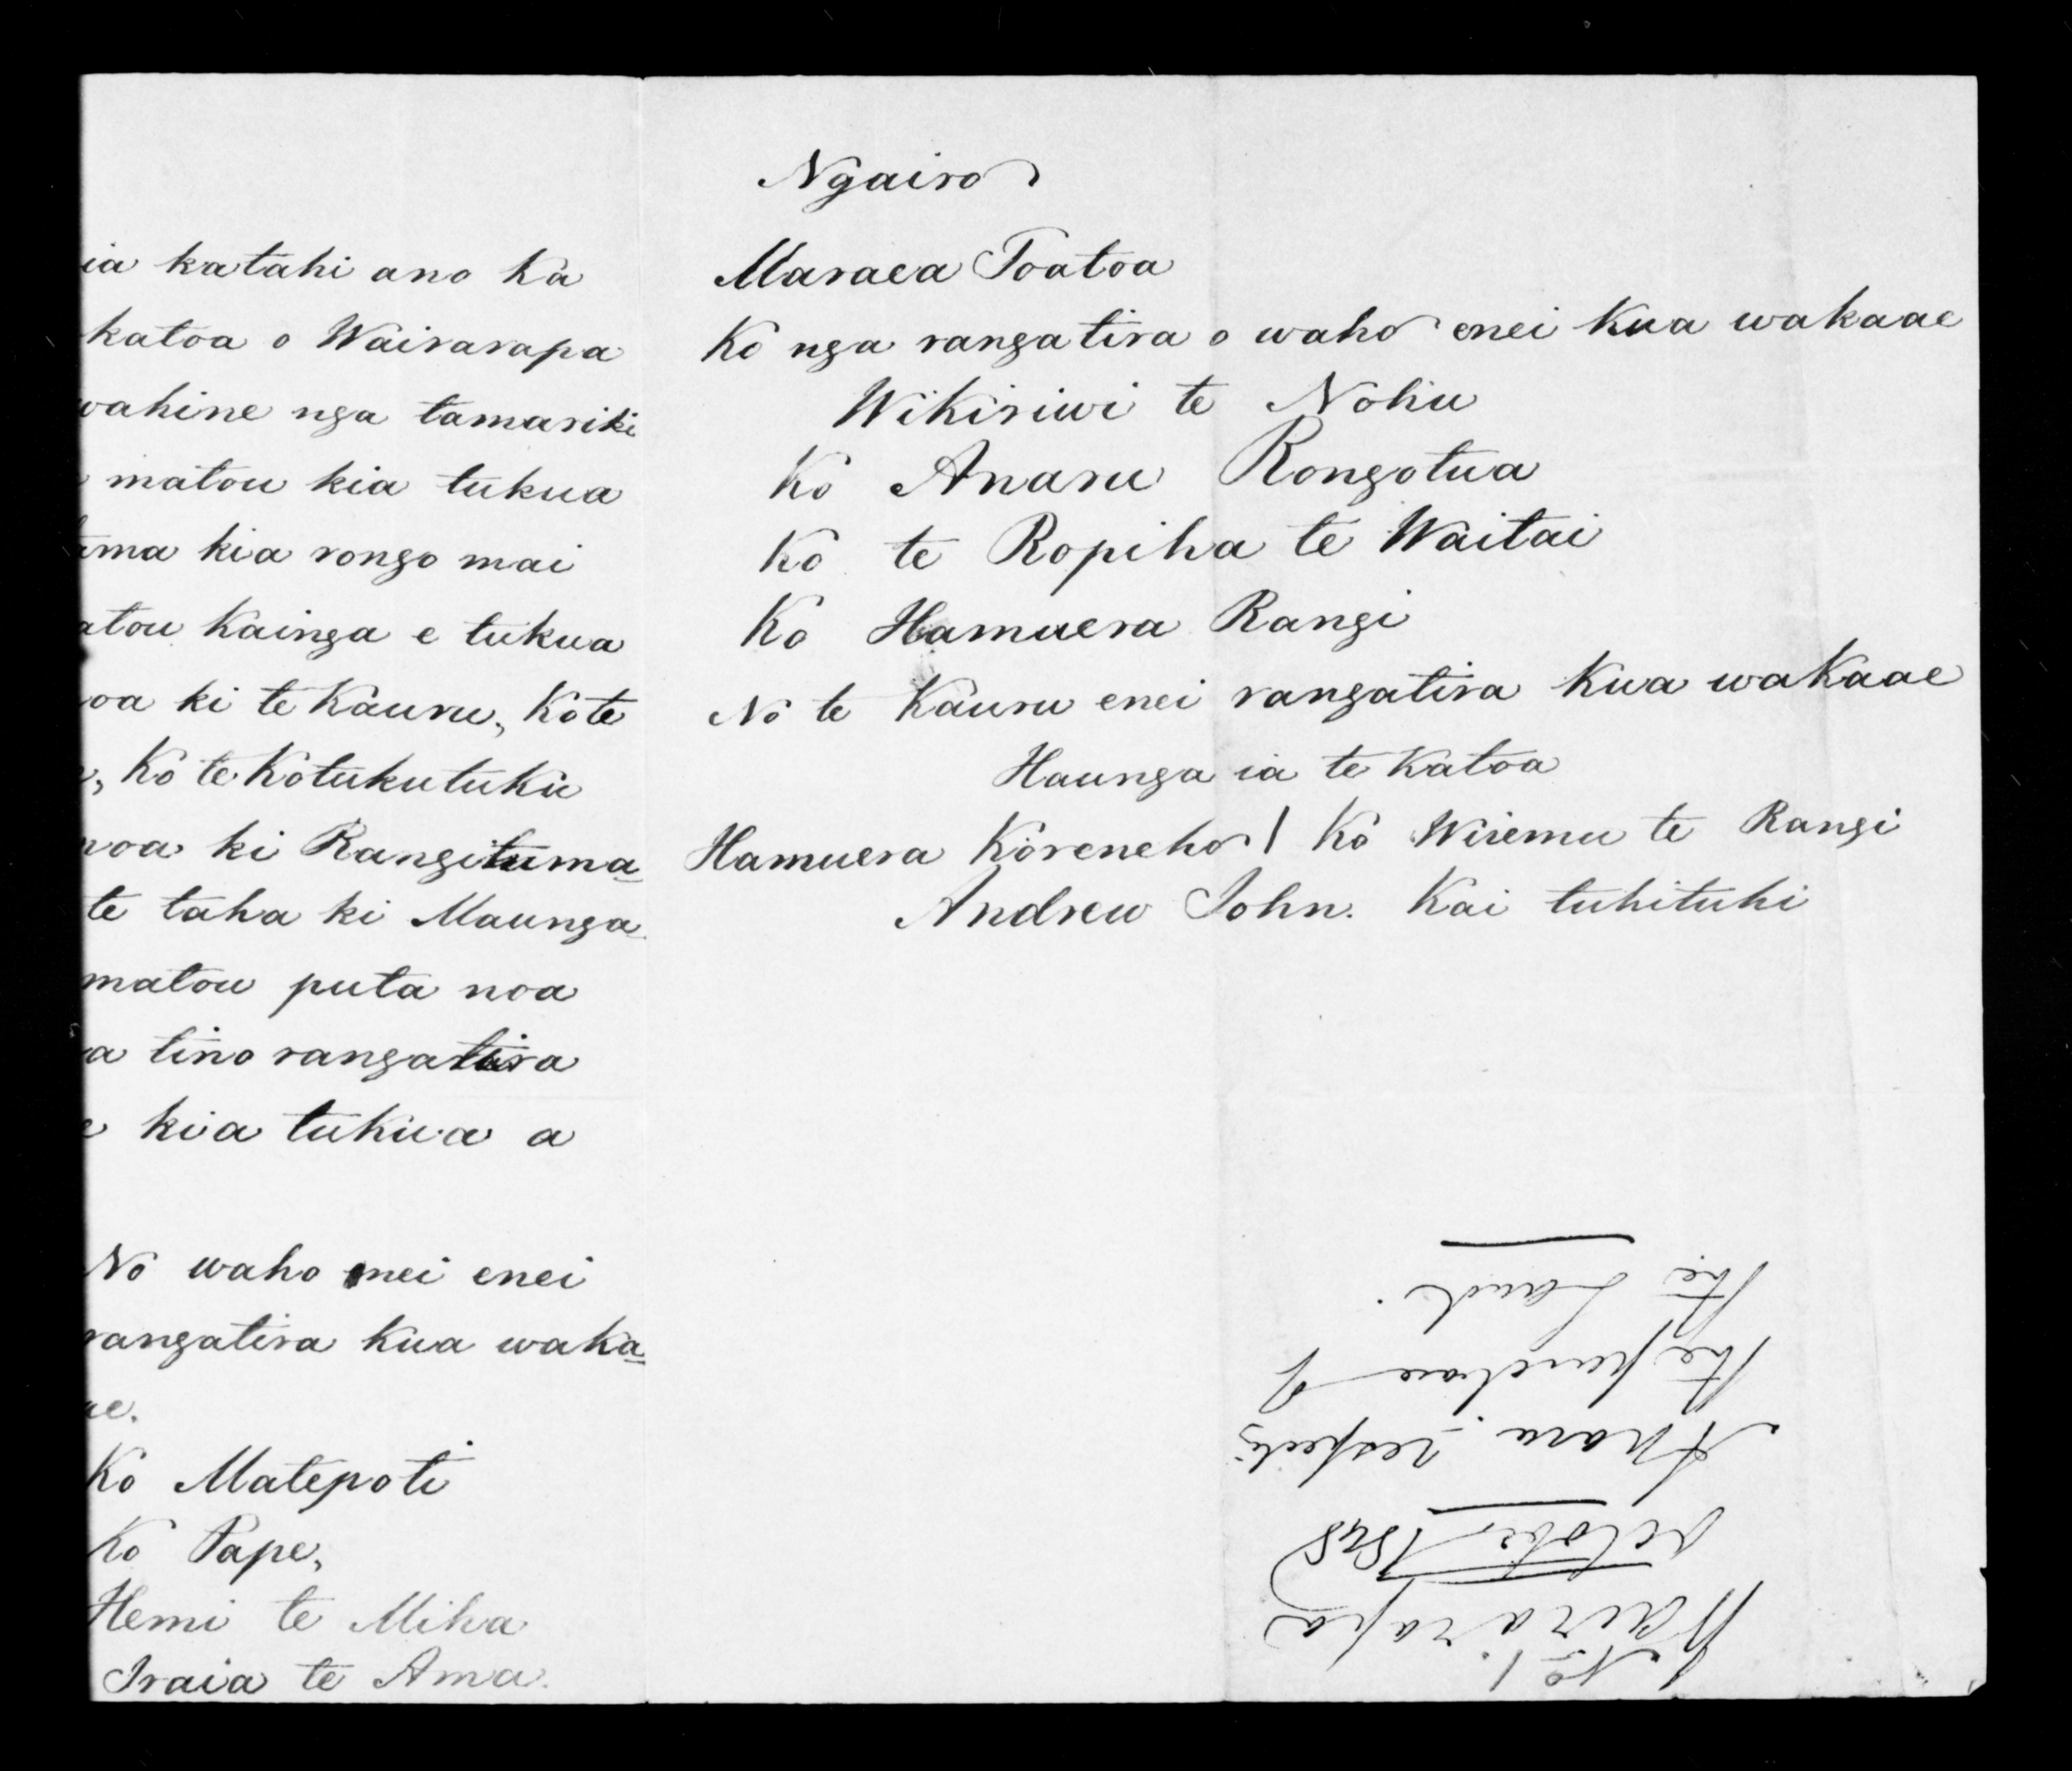 ia katahi ano ka
katoa o Wairarapa
wahine nga tamariki
matou kia tukua
ma kia rongo mai
atou kainga e tukua
oa ki te Kauru, Ko te
, Ko te Kotukutuku
noa ki Rangituma-
te taha ki Maunga-
matou puta noa
a tino rangatira
e kia tukua a
No waho enei enei
rangatira kua waka-
ae.
Ko Matepoti
Ko Pape,
Hemi te Miha
Iraia te Ama.
Ngairo
Maraea Toatoa
Ko nga rangatira o waho enei kua wakaae
Wikiriwi te Nohu
Ko Anaru Rongotua
Ko te Ropiha te Waitai
Ko Hamuera Rangi
No te Kauru enei rangatira kua wakaae
Haunga ia te katoa
Hamuera Koreneho | Ko Wiremu te Rangi
Andrew John. Kai tuhituhi
No 1.
Wairarapa
October 1848
respectg
the purchase of
the Land.